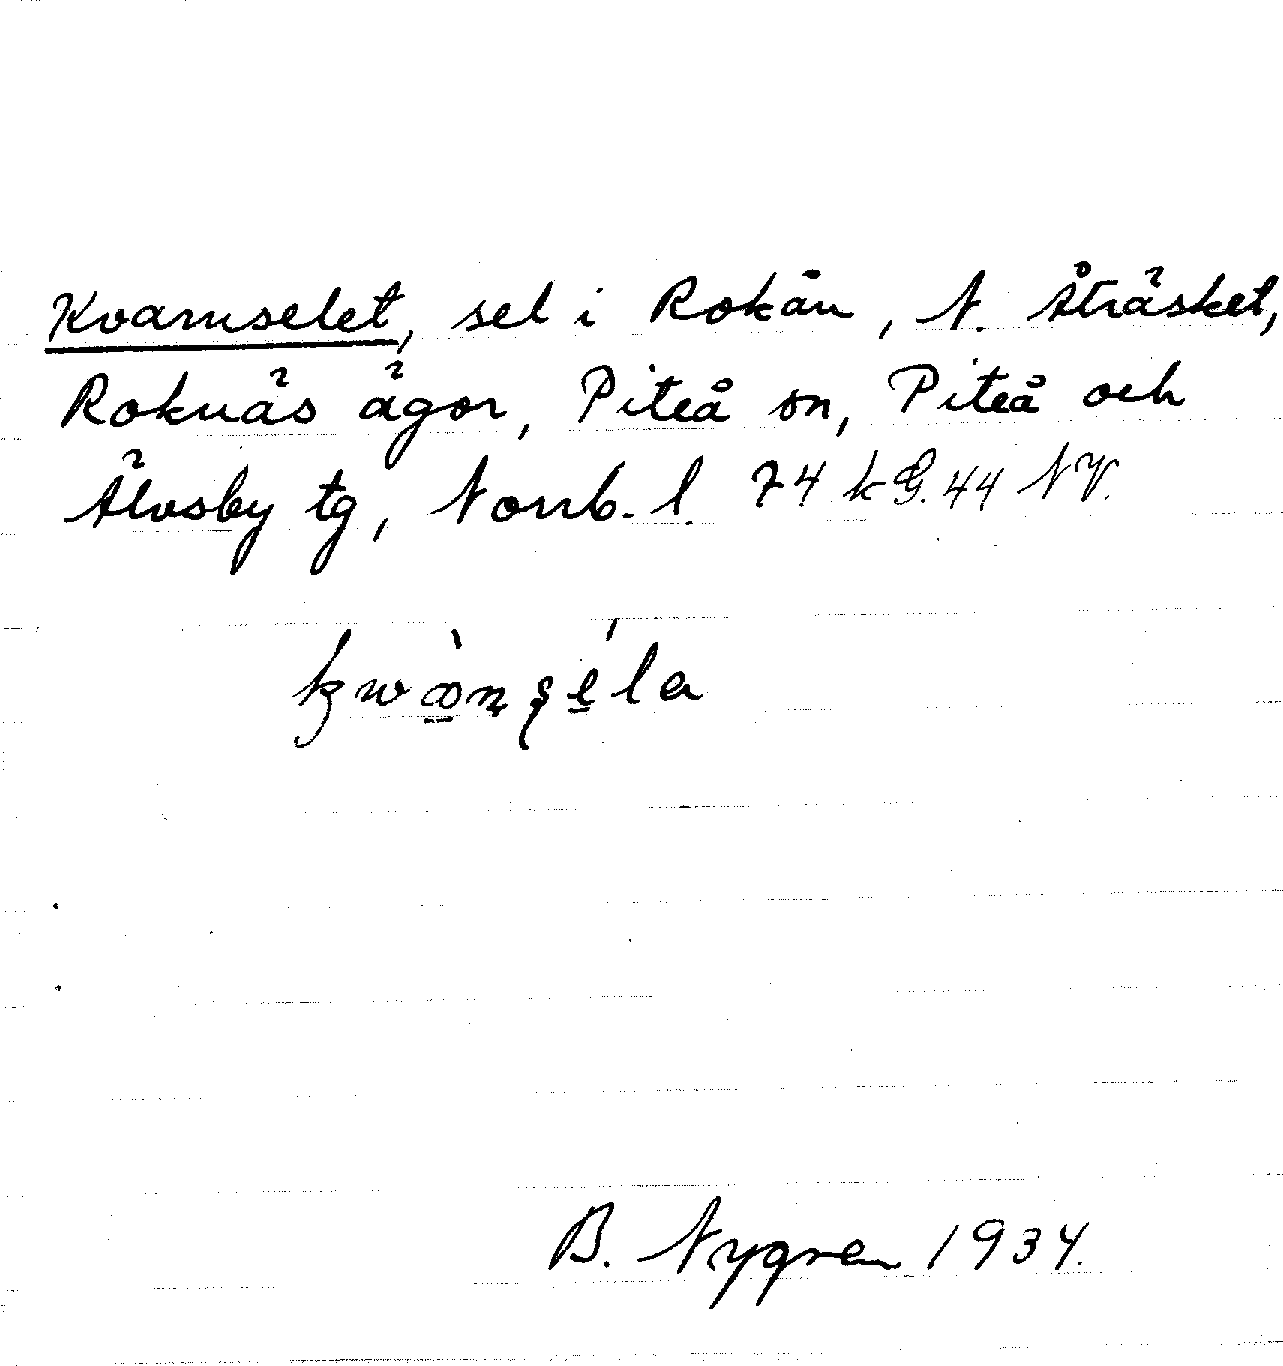 Kvarnselet, sel i Rokån, N. Åträsket,
Roknäs ägor, Piteå sn, Piteå och
Älvsby tg, Norrb. l. 74 k G. 44 NV.
B. Nygren 1934.